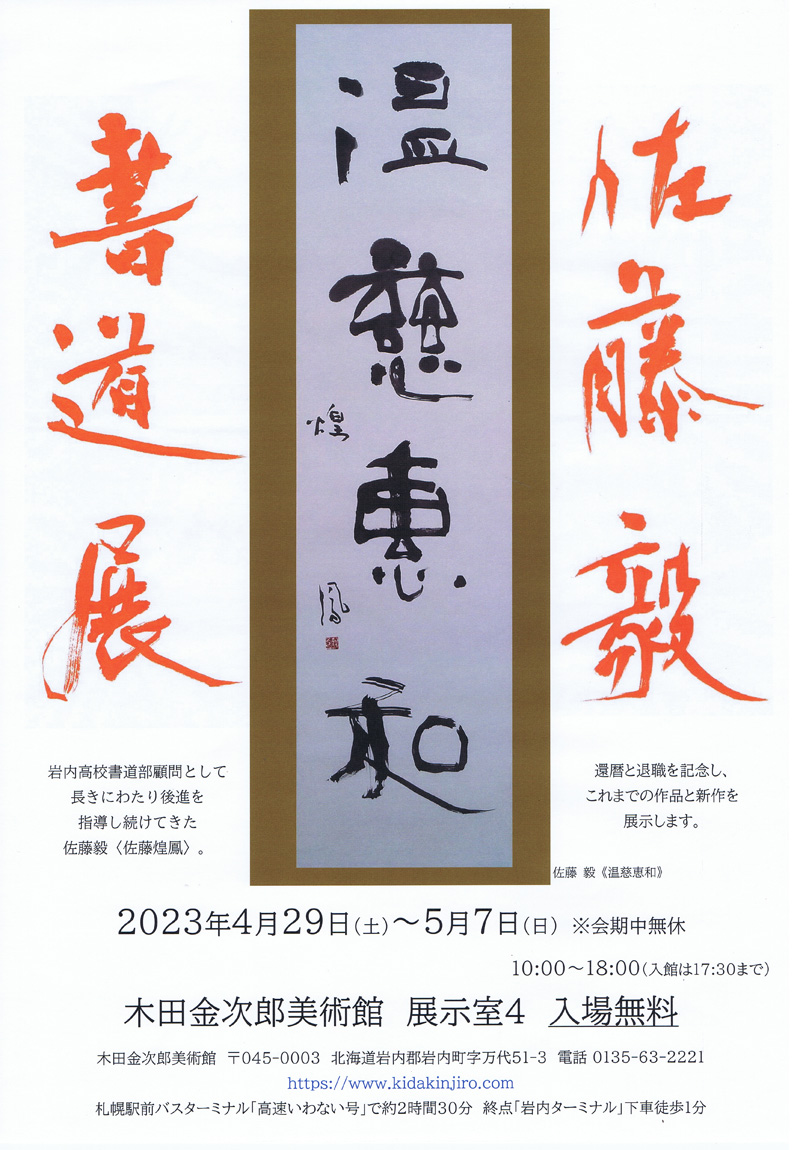 佐藤毅
書道展
温慈恵和
煌鳳
岩内高校書道部顧問として
長きにわたり後進を
指導し続けてきた
佐藤毅〈佐藤煌鳳〉。
還暦と退職を記念し、
これまでの作品と新作を
展示します。
佐藤 毅《温慈恵和》
2023年4月29日(土)～5月7日(日) ※会期中無休
10:00～18:00(入館は17:30まで)
木田金次郎美術館 展示室4 入場無料
木田金次郎美術館 〒045-0003 北海道岩内郡岩内町字万代51-3 電話 0135-63-2221
https://www.kidakinjiro.com
札幌駅前バスターミナル「高速いわない号」で約2時間30分 終点「岩内ターミナル」下車徒歩1分